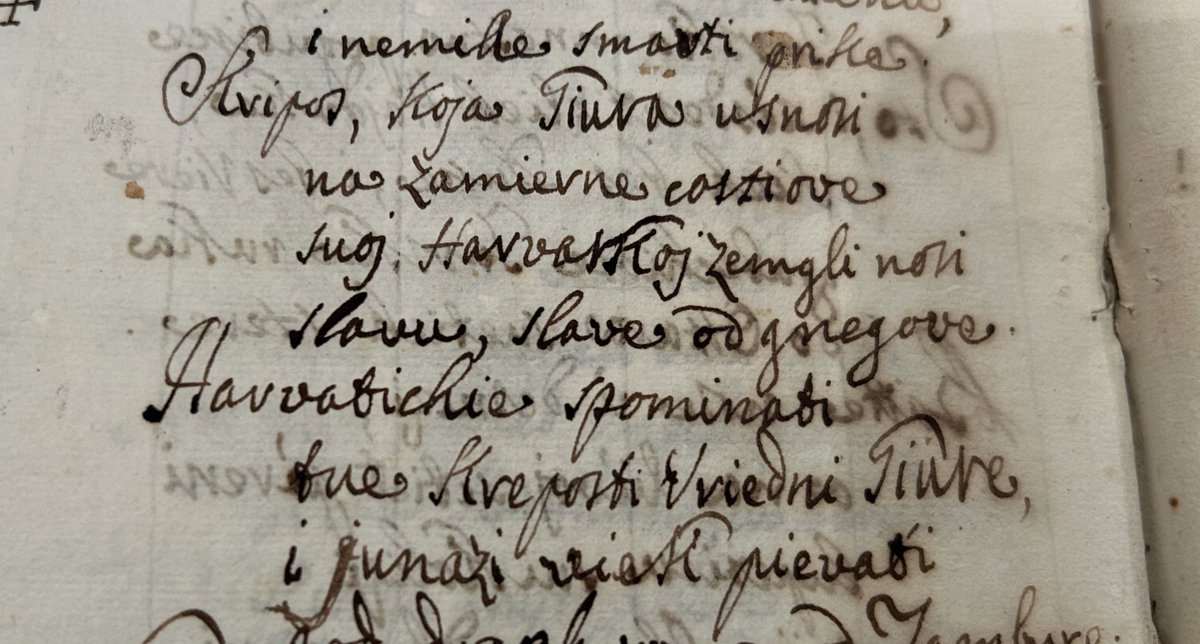 i nemille smarti prike.
Kripos, Koja Tiura uſnoſi
na zamierne coſtiove
suoj Harvatſkoj zemgli noſi
slavu, slave od gnegove.
Harvatichie spominati
tue Krepoſti Vriedni Tiure,
i junazi viek pievati